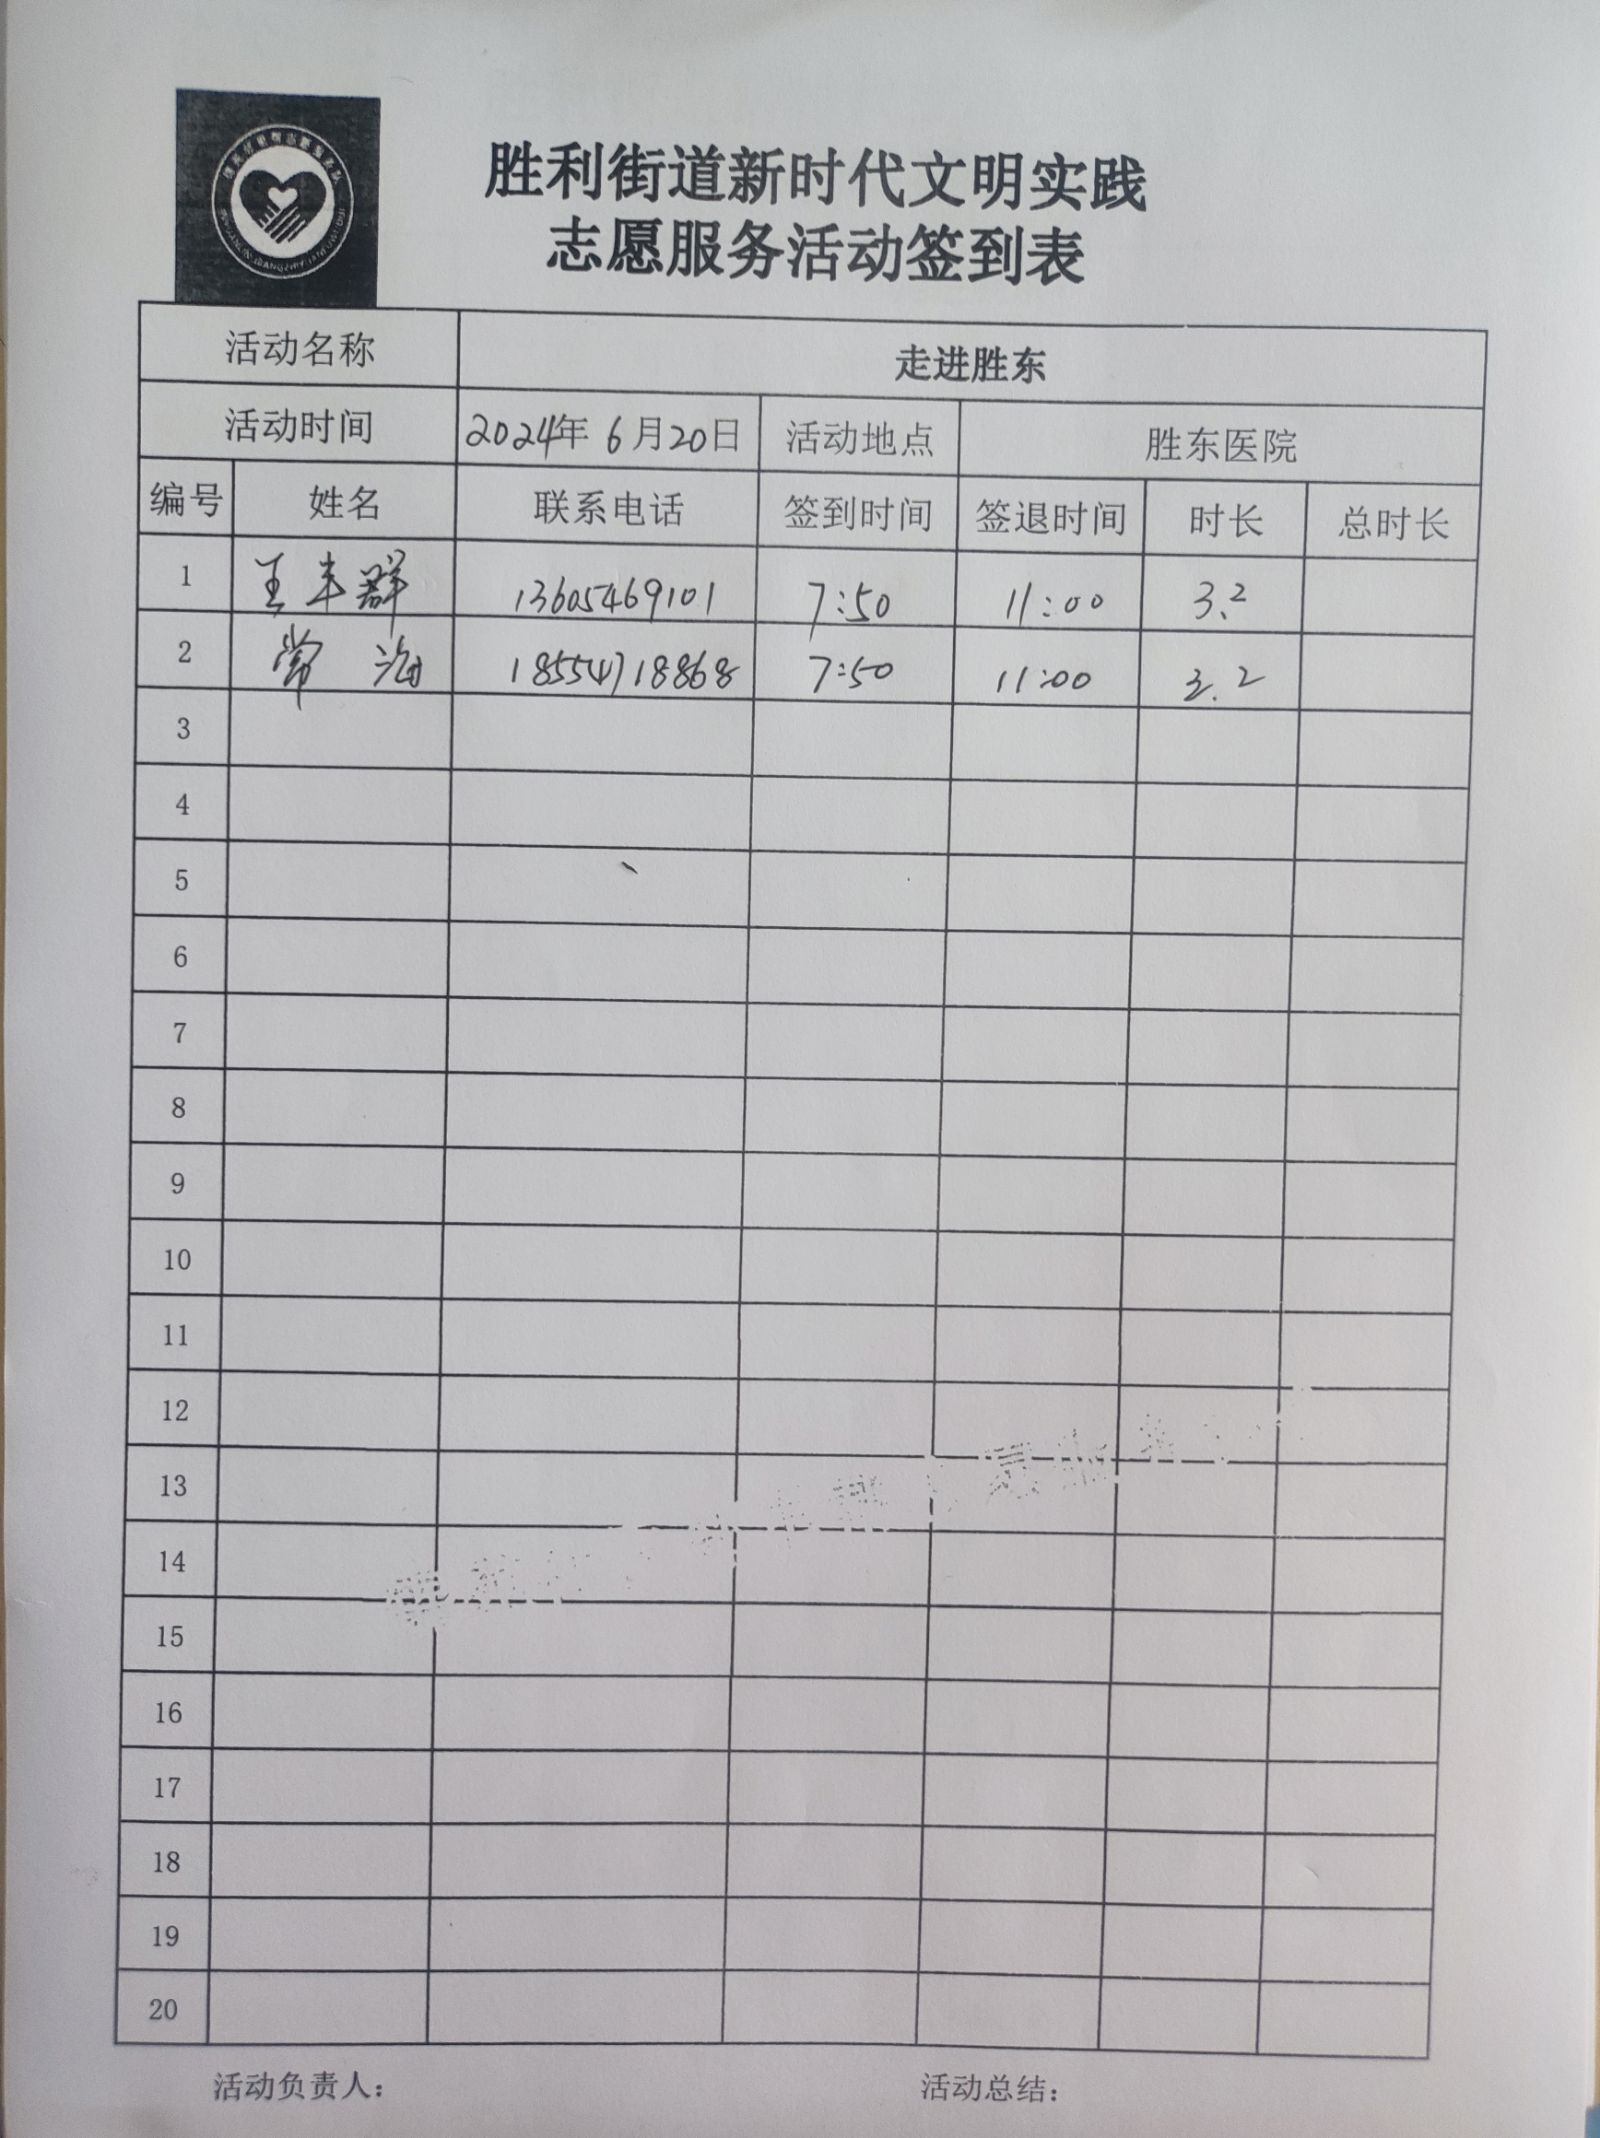 胜利街道新时代文明实践
志愿服务活动签到表
活动名称 走进胜东
活动时间 2024年 6月20日 活动地点 胜东医院
编号 姓名 联系电话 签到时间 签退时间 时长 总时长
1 王丰群 13605469101 7:50 11:00 3.2
2 常海 18554718868 7:50 11:00 3.2
3
4
5
6
7
8
9
10
11
12
13
14
15
16
17
18
19
20
活动负责人： 活动总结：